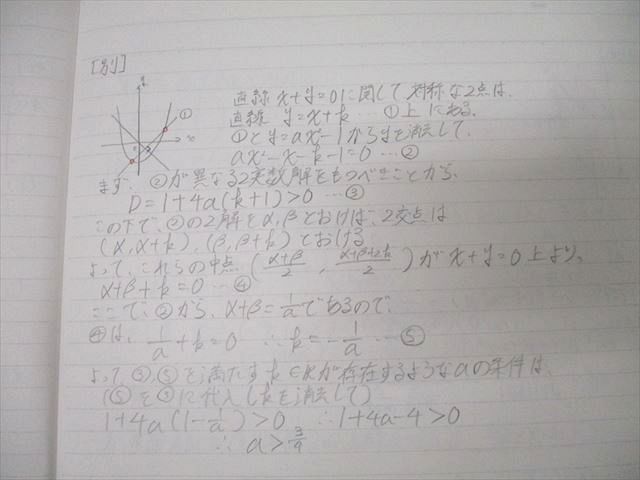 [別]
y
①
x
0
直線 x+y=0に関して対称な2点は、
直線 y=x+k …①上にある。
①とy=ax²-1からyを消去して、
ax²-x-k-1=0 …②
まず、②が異なる2実数解をもつべきことから、
D=1+4a(k+1)>0 …③
この下で、②の2解をα,βとおけば、2交点は
(α,α+k),(β,β+k)とおける
よって、これらの中点(α+β/2, α+β+2k/2)がx+y=0上より、
α+β+k=0 …④
ここで、②から、α+β=1/aであるので、
④は、1/a+k=0 ∴k=-1/a …⑤
よって③,⑤を満たすk∈Rが存在するようなaの条件は、
(⑤を③に代入しkを消去して)
1+4a(1-1/a)>0 ∴1+4a-4>0
∴ a>3/4